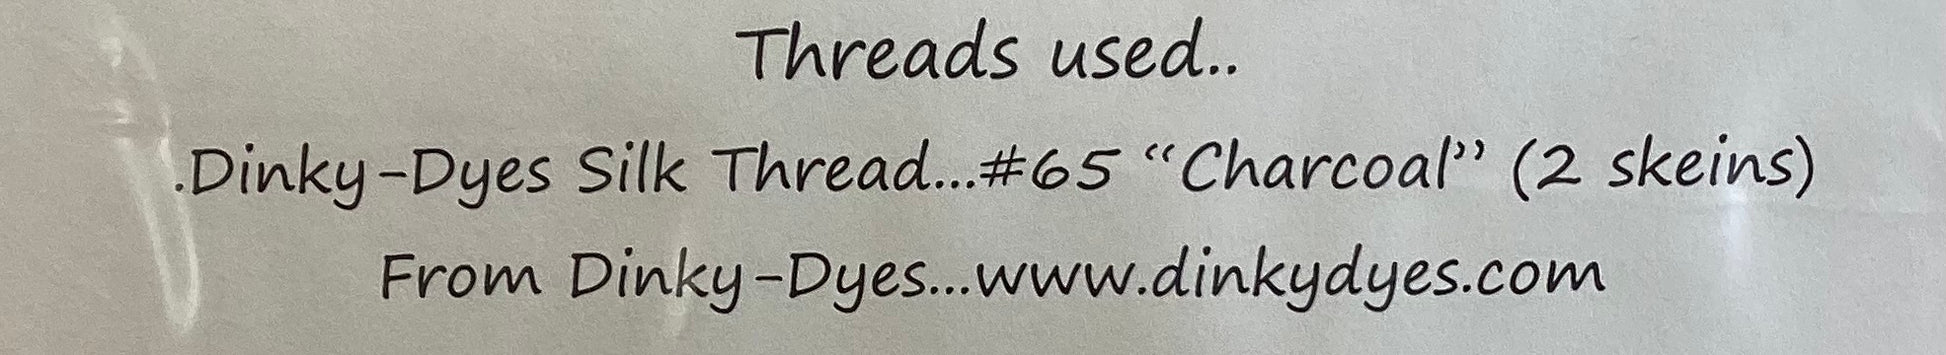 Threads used..
.Dinky-Dyes Silk Thread...#65 “Charcoal” (2 skeins)
From Dinky-Dyes...www.dinkydyes.com